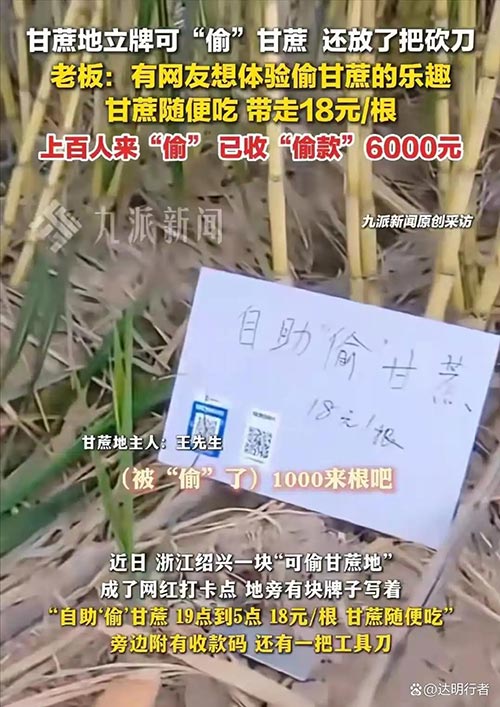 甘蔗地立牌可“偷”甘蔗 还放了把砍刀
老板：有网友想体验偷甘蔗的乐趣
甘蔗随便吃 带走18元/根
上百人来“偷” 已收“偷款”6000元
九派新闻
九派新闻原创采访
自助“偷”甘蔗
18元/根
甘蔗地主人：王先生
（被“偷”了）1000来根吧
近日 浙江绍兴一块“可偷甘蔗地”
成了网红打卡点 地旁有块牌子写着
“自助‘偷’甘蔗 19点到5点 18元/根 甘蔗随便吃”
旁边附有收款码 还有一把工具刀
@达明行者